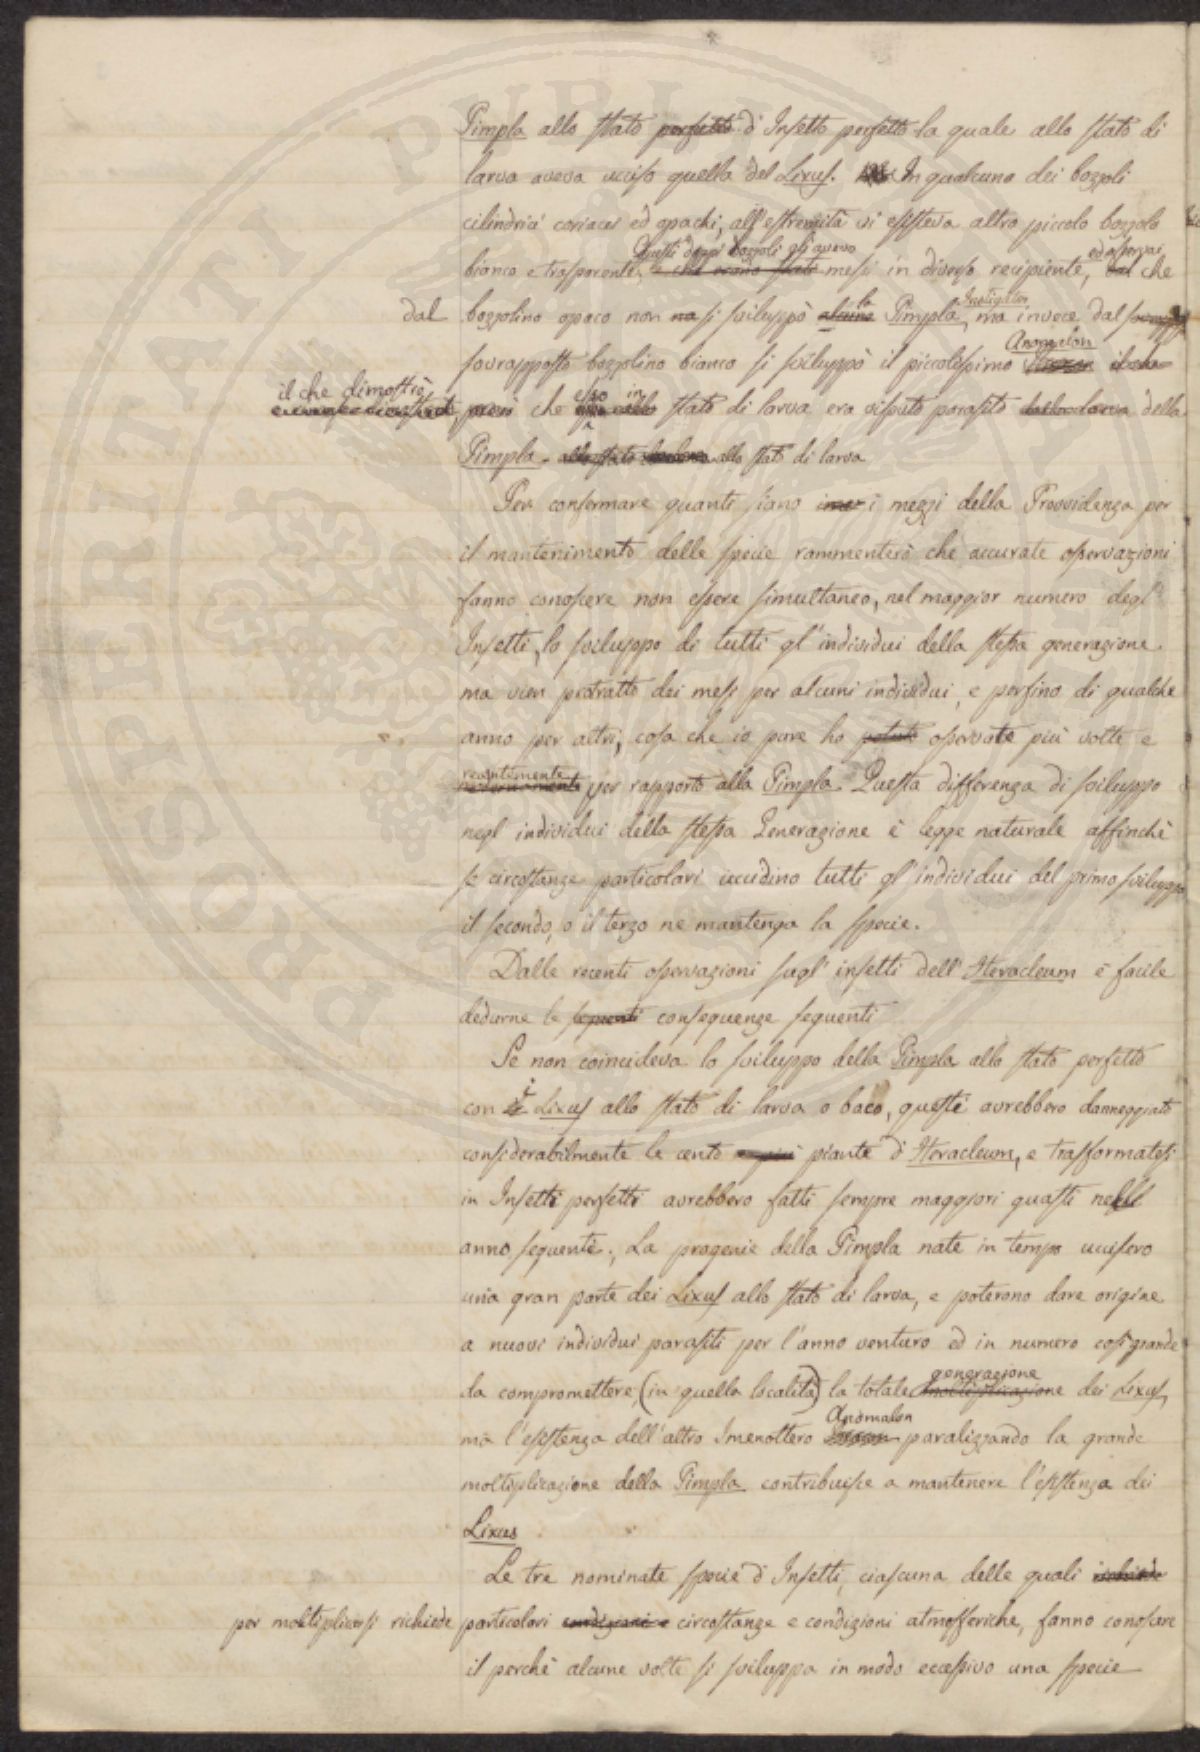 Pimpla allo stato perfetto d'Insetto perfetto la quale allo stato di
larva aveva ucciso quella del Lixus. In qualcuno dei bozzoli
cilindrici coriacei ed opachi, all'estremità vi esisteva altro piccolo bozzolo
Questi doppi bozzoli gli avevo ed osservai
bianco e trasparente, e che erano stati messi in diverso recipiente, che
la Instigator
dal bozzolino opaco non si sviluppò alcuna Pimpla, ma invece dal
Anomalon
sovrapposto bozzolino bianco si sviluppò il piccolissimo il che
il che dimostrò esso in
però che stato di larva era vissuto parasito dalla larva della
Pimpla. allo stato allo stato di larva
Per confermare quanti siano i mezzi della Provvidenza per
il mantenimento delle specie rammenterò che accurate osservazioni
fanno conoscere non essere simultaneo, nel maggior numero degl'
Insetti, lo sviluppo di tutti gl'individui della stessa generazione
ma vien protratto dei mesi per alcuni individui, e perfino di qualche
anno per altri, cosa che io pure ho potuto osservate più volte e
recentemente
per rapporto alla Pimpla. Questa differenza di sviluppo
negl individui della stessa Generazione è legge naturale affinchè
se circostanze particolari uccidino tutti gl'individui del primo sviluppo
il secondo, o il terzo ne mantenga la specie.
Dalle recenti osservazioni sugl'insetti dell'Heracleum è facile
dedurne le seguenti conseguenze seguenti
Se non coincideva lo sviluppo della Pimpla allo stato perfetto
i
con il Lixus allo stato di larva o baco, questi avrebbero danneggiato
considerabilmente le cento e più piante d'Heracleum, e trasformatesi
in Insetti perfetti avrebbero fatti sempre maggiori guasti nell
anno seguente. La progenie della Pimpla nate in tempo uccisero
una gran parte dei Lixus allo stato di larva, e poterono dare origine
a nuovi individui parasiti per l'anno venturo ed in numero così grande
generazione
da compromettere, (in quella località) la totale moltiplicazione dei Lixus,
Anomalon
ma l'esistenza dell'altro Imenottero paralizzando la grande
moltiplicazione della Pimpla contribuisce a mantenere l'esistenza dei
Lixus
Le tre nominate specie d'Insetti, ciascuna delle quali richiede
per moltiplicarsi richiede particolari condizioni e circostanze e condizioni atmosferiche, fanno conoscere
il perchè alcune volte si sviluppa in modo eccessivo una specie
PROSPERITATI PUBLICAE